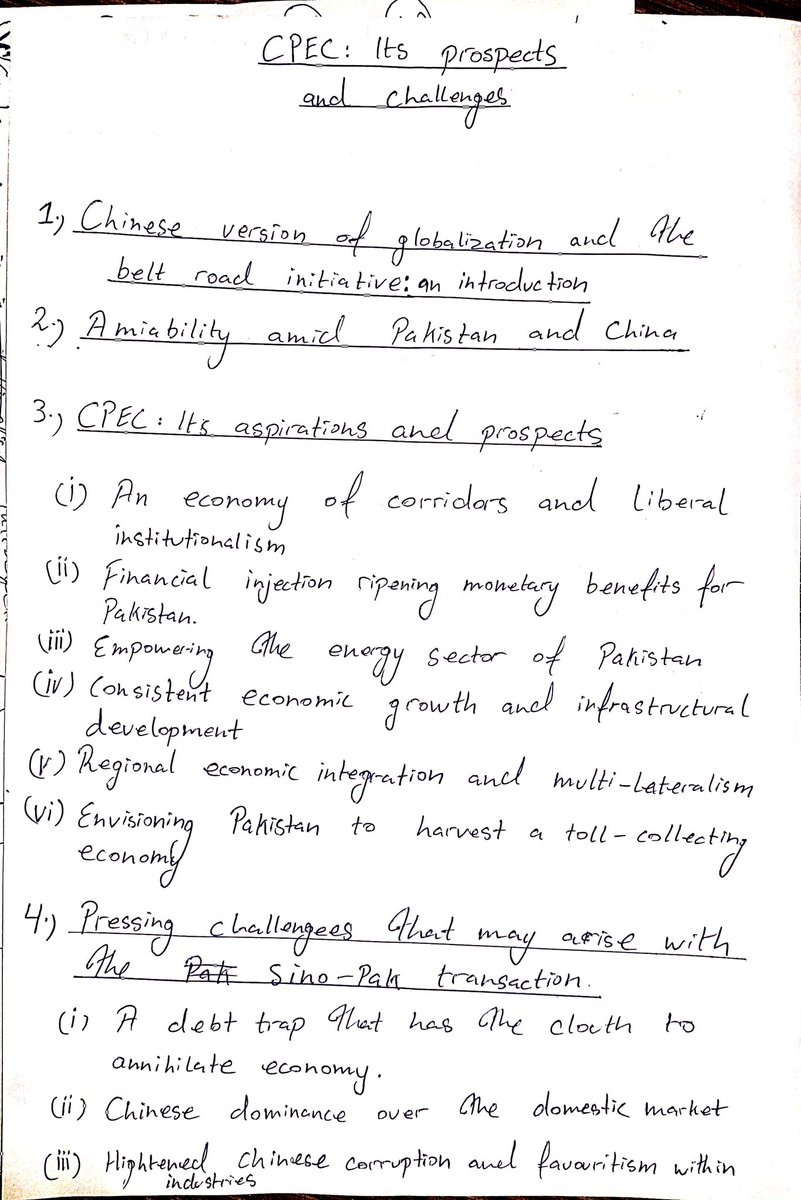 CPEC: Its prospects
and challenges
1.) Chinese version of globalization and the
belt road initiative: an introduction
2.) Amiability amid Pakistan and China
3.) CPEC: Its aspirations and prospects
(i) An economy of corridors and liberal
institutionalism
(ii) Financial injection ripening monetary benefits for
Pakistan.
(iii) Empowering the energy sector of Pakistan
(iv) Consistent economic growth and infrastructural
development
(v) Regional economic integration and multi-lateralism
(vi) Envisioning Pakistan to harvest a toll-collecting
economy
4.) Pressing challengees that may arise with
the Pak Sino-Pak transaction.
(i) A debt trap that has the clouth to
annihilate economy.
(ii) Chinese dominance over the domestic market
(iii) Hightened chinese corruption and favouritism within
industries